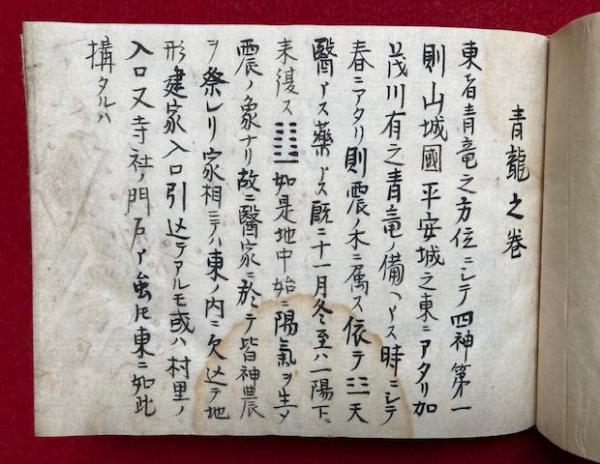 青龍之巻
東者青竜之方位ニシテ四神第一
則山城國平安城之東ニアタリ加
茂川有之青竜ノ備ヘトス時ニシテ
春ニアタリ則震ノ木ニ属ス依テ☳天
醫トス藥トス既ニ十一月冬至ハ一陽下
来復ス䷗如是地中始ニ陽氣ヲ生ノ
震ノ象ナリ故ニ醫家ニ於テ皆神農
ヲ祭レリ家相ニテハ東ノ内ニ欠込テ地
形建家入口引込テアルモ或ハ村里ノ
入口又寺社ノ門戸ト雖モ東ニ如此
構タルハ